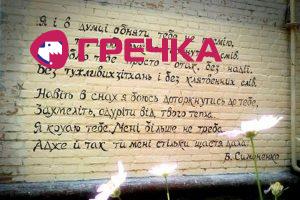 Я і в думці обняти тебе не
ГРЕЧКА
тебе просто – отак, без надії,
Без тужливих зітхань і без клятвенних слів.
Навіть в снах я боюсь доторкнутись до тебе,
Захмеліть, одуріти від твого тепла.
Я кохаю тебе. Мені більше не треба.
Адже й так ти мені стільки щастя дала.
В. Симоненко